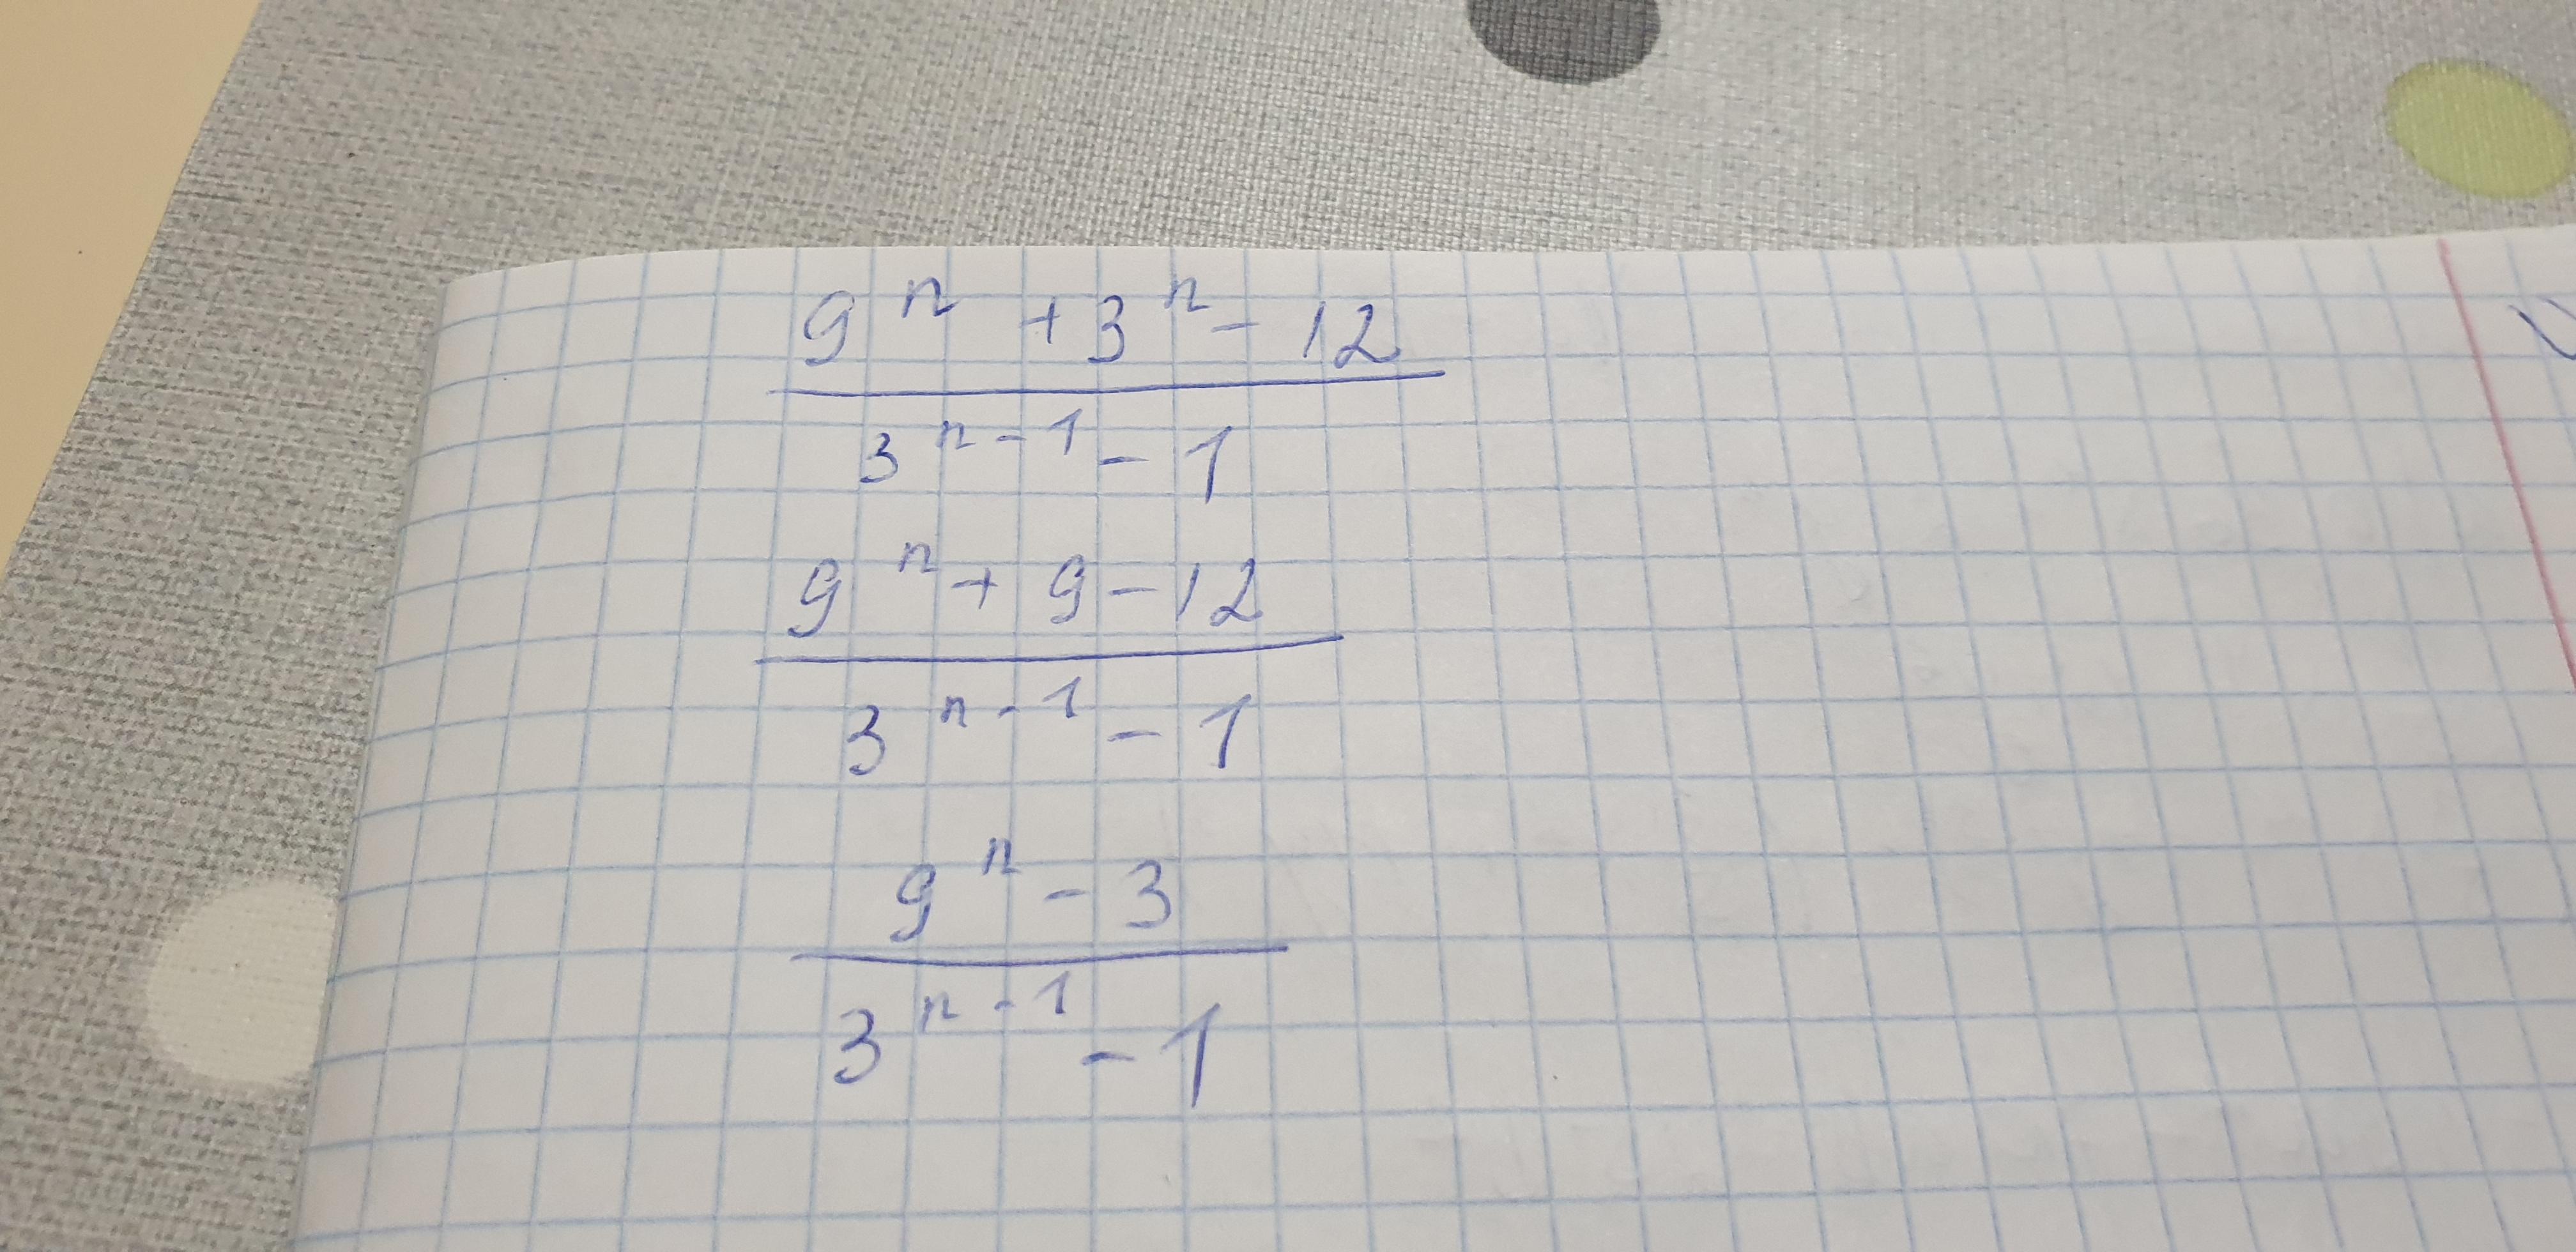 9^n + 3^n - 12
3^n-1 - 1
9^n + 9 - 12
3^n-1 - 1
9^n - 3
3^n-1 - 1